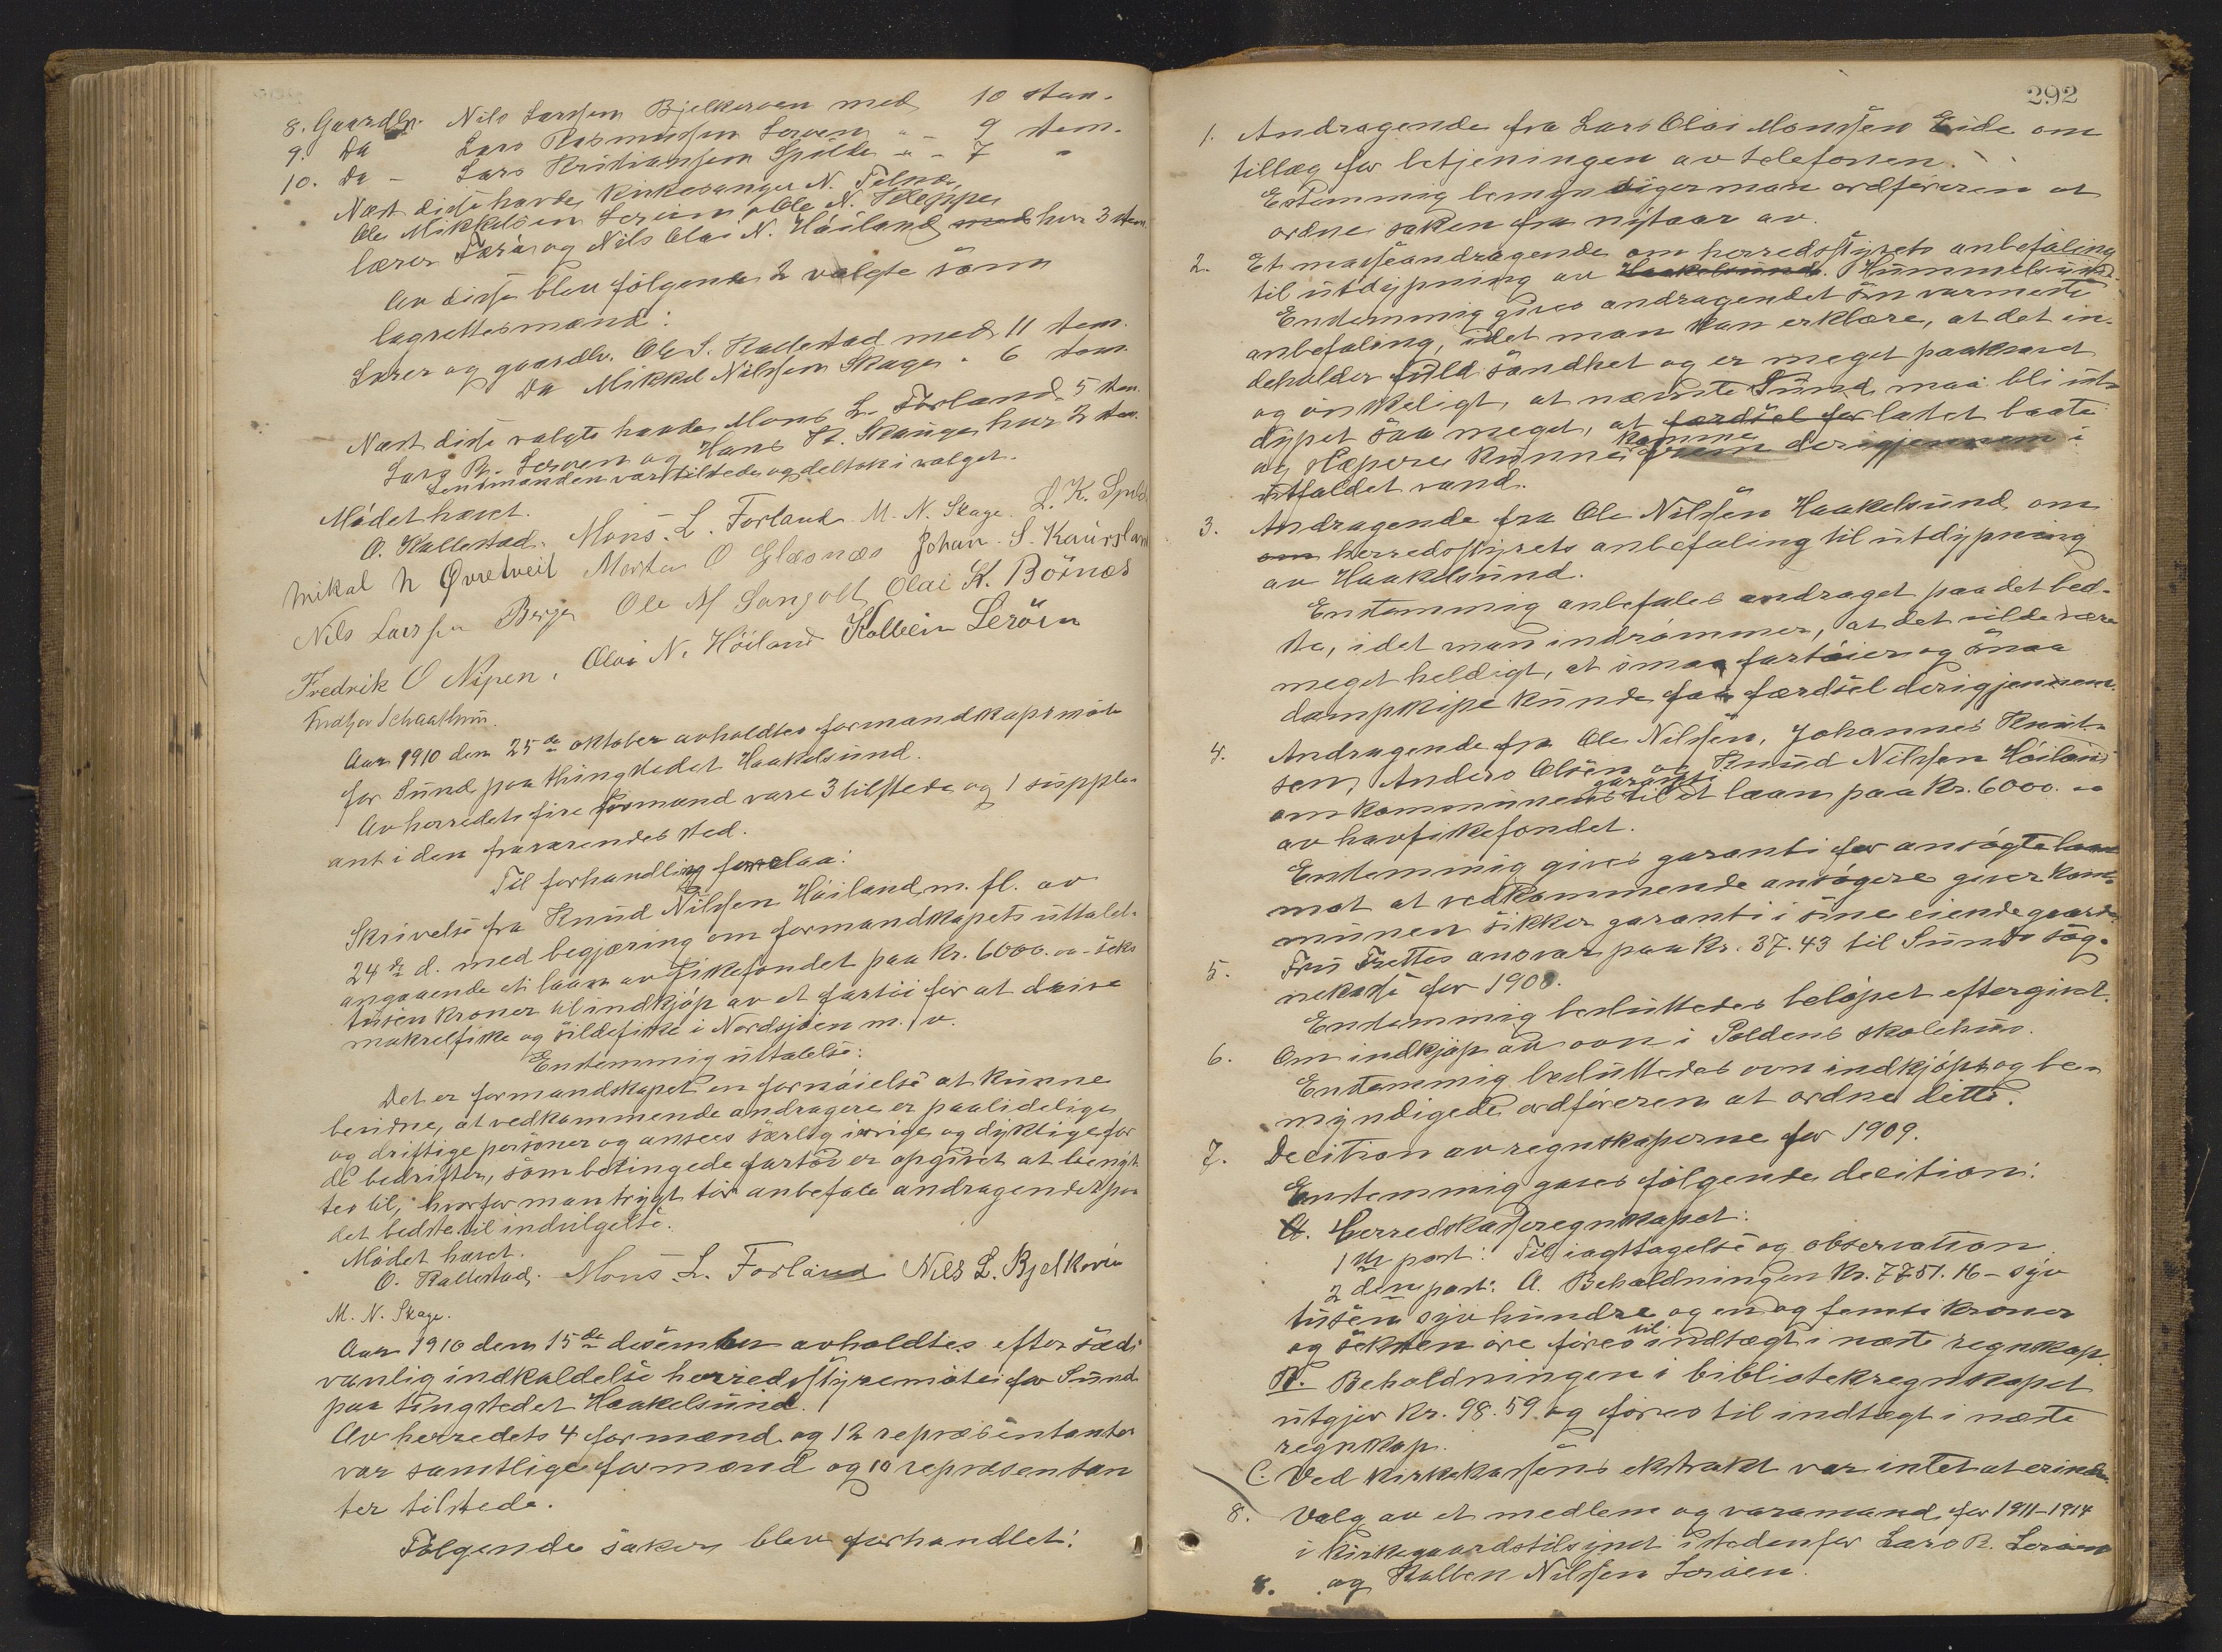 8. Gaardbr. Nils Larssen Bjelkerøen med 10 stem.
9. Da Lars Rasmussen Lerøen " - 9 stem.
10. Da - Lars Kristiansen Spilde " - 7 "
Næst disse havde kirkesanger N. Telnæs,
Ole Mikkelsen Lerøen, Ole N. Kleppe,
lærer Færø og Nils Olai N. Höiland med hver 3 stem.
Av disse blev følgende 2 valgte som
lagrettesmænd:
Lærer og gaardbr. Ole S. Kallestad med 11 stem.
Da Mikkel Nilssen Skage " 6 stem.
Næst disse valgte havde Mons L. Forland 5 stem.
Lars R. Lerøen og Hans K. Skauge hver 2 stem.
Lensmanden var tilstede og deltok i valget.
Mödet hævet.
O. Kallestad. Mons. L. Forland M. N. Skage. L. K. Spilde
Mikal N Øvretveit Morten O Glæsnæs Johan. S. Kaursland
Nils Larssen Berge Ole M Sangolt Olai K. Börnes
Fredrik O Nipen. Olai N. Höiland Kolbein Leröen
Aar 1910 den 25de oktober avholdtes formandskapsmöte
for Sund paa thingstedet Haakelsund.
Av herredets fire formænd vare 3 tilstede og 1 supple-
ant i den fraværendes sted.
Til forhandling forelaa:
Skrivelse fra Knud Nilssen Höiland m. fl. av
24de d. med begjæring om formandskapets uttalel-
angaaende et laan av fiskefondet paa kr. 6000.00 - seks
tusen kroner til indkjöp av et fartöi for at drive
makrelfiske og sildefiske i Nordsjöen m. v.
Enstemmig uttalelse:
Det er formandskapet en fornöielse at kunne
bevidne, at vedkommende andragere er paalidelige
og driftige personer og ansees særlig ivrige og dyktige for
de bedrifter, som betingede fartöi er opgivet at benyt-
tes til, hvorfor man trygt tör anbefale andragendet paa
det bedste til indvilgelse.
Mödet hævet.
O. Kallestad. Mons L. Forland Nils L. Bjelkeröen
M. N. Skage.
Aar 1910 den 15de desember avholdtes efter sæd-
vanlig indkaldelse herredsstyremöte for Sund
paa tingstedet Haakelsund.
Av herredets 4 formænd og 12 repræsentanter
var samtlige formænd og 10 repræsentan
ter tilstede.
Følgende saker blev forhandlet:
292
1. Andragende fra Lars Olai Monssen Eide om
tillæg for betjeningen av telefonen.
Enstemmig bemyndiger man ordföreren at
ordne saken fra nytaar av.
2. Et masseandragende om herredsstyrets anbefaling
til utdypning av Haakelsund. Hummelsund.
Enstemmig gives andragendet sin varmeste
anbefaling, idet man kan erklære, at det in-
deholder fuld sandhet og er meget paakrævet
og önskeligt, at nævnte Sund maa bli ut-
dypet saa meget, at færdsel for lastet baate
og slæpere kunne komme frem derigjennem i
utfaldet vand.
3. Andragende fra Ole Nilssen Haakelsund om
om herredsstyrets anbefaling til utdypning
av Haakelsund.
Enstemmig anbefales andraget paa det bed-
ste, idet man indrömmer, at det vilde være
meget heldigt, at smaa fartöier og smaa
dampskipe kunde faa færdsel derigjennem.
4. Andragende fra Ole Nilssen, Johannes Knut-
sen, Anders Olsen og Knud Nilssen Höiland
om kommunens garanti til et laan paa kr. 6000.00
av havfiskefondet.
Enstemmig gives garanti for ansögte laan
mot at vedkommende ansögere giver kom-
munen sikker garanti i sine eiende gaarde.
5. Fru Trettes ansvar paa kr. 37.43 til Sunds sog-
nekasse for 1908.
Enstemmig besluttedes belöpet eftergivet.
6. Om indkjöp av ovn i Toldens skolehus.
Enstemmig besluttedes ovn indkjöpt og be-
myndigede ordföreren at ordne dette.
7. Decition av regnskaperne for 1909.
Enstemmig gaves fölgende decition:
A. Herredskasseregnskapet:
1ste post: Til iagttagelse og observation.
2den post: A. Beholdningen kr. 7751.16 - syv
tusen syv hundre og en og femti kroner
og seksten öre föres til indtægt i næste regnskap.
B. Beholdningen i bibliotekregnskapet
utgjör kr. 98.59 og föres til indtægt i næste
regnskap.
C. Ved kirkekassens ekstrakt var intet at erindre.
8. Valg av et medlem og varamand for 1911-1914
i kirkegaardstilsynet istedenfor Lars R. Leröen
8. og Kolben Nilssen Leröen.